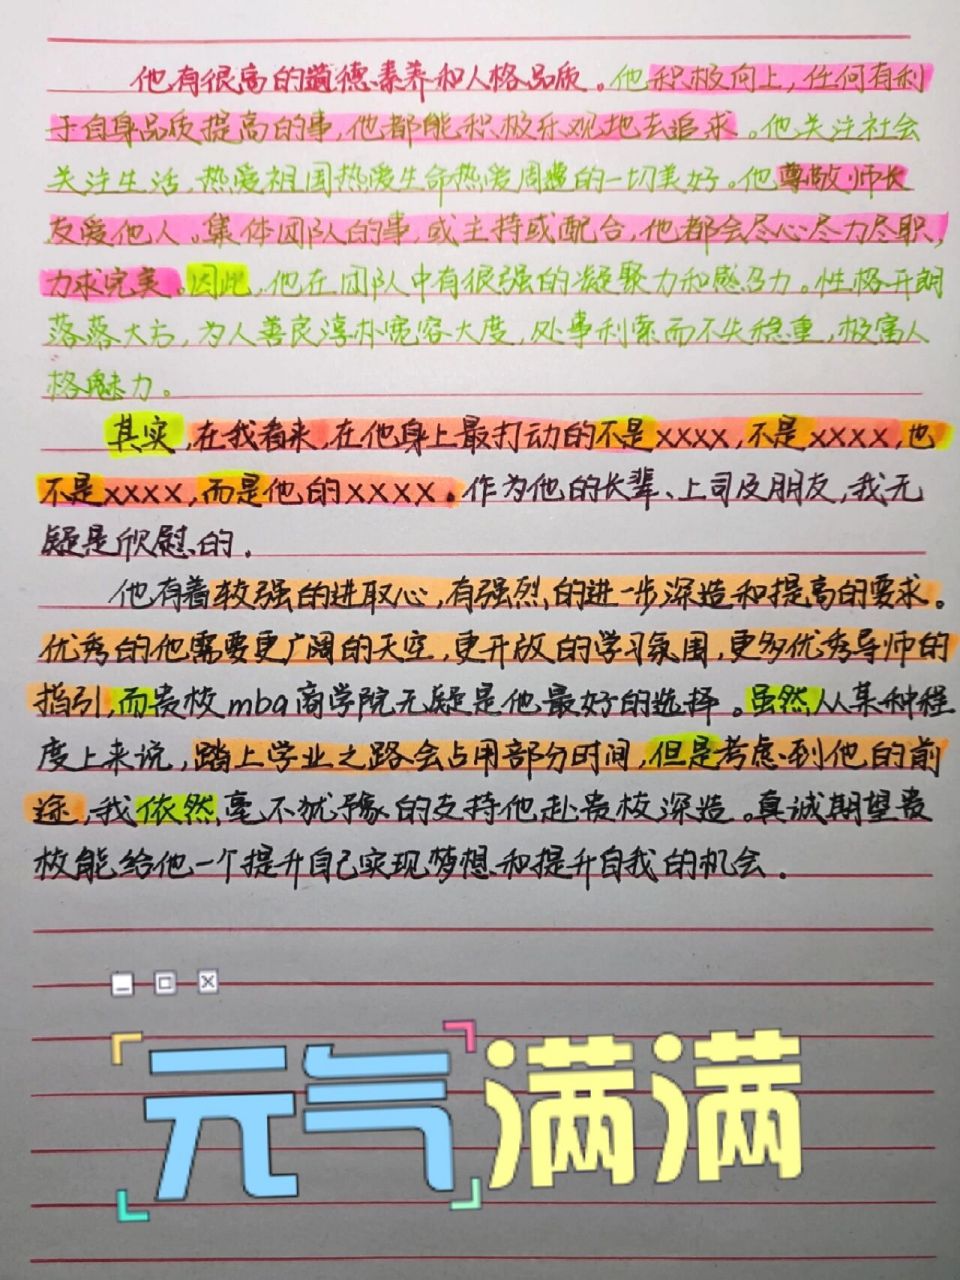 他有很高的道德素养和人格品质。他积极向上，任何有利
于自身品质提高的事，他都能积极乐观地去追求。他关注社会
关注生活，热爱祖国热爱生命热爱周遭的一切美好。他尊敬师长
友爱他人。集体团队的事，或主持或配合，他都会尽心尽力尽职，
力求完美。因此，他在团队中有很强的凝聚力和感召力。性格开朗
落落大方，为人善良淳朴宽容大度，处事利索而不失稳重，极富人
格魅力。
其实，在我看来，在他身上最打动的不是XXXX，不是XXXX，也
不是XXXX，而是他的XXXX。作为他的长辈、上司及朋友，我无
疑是欣慰的。
他有着较强的进取心，有强烈的进一步深造和提高的要求。
优秀的他需要更广阔的天空，更开放的学习氛围，更多优秀导师的
指引，而贵校mba商学院无疑是他最好的选择。虽然从某种程
度上来说，踏上学业之路会占用部分时间，但是考虑到他的前
途，我依然毫不犹豫的支持他赴贵校深造。真诚期望贵
校能给他一个提升自己实现梦想和提升自我的机会。
元气满满